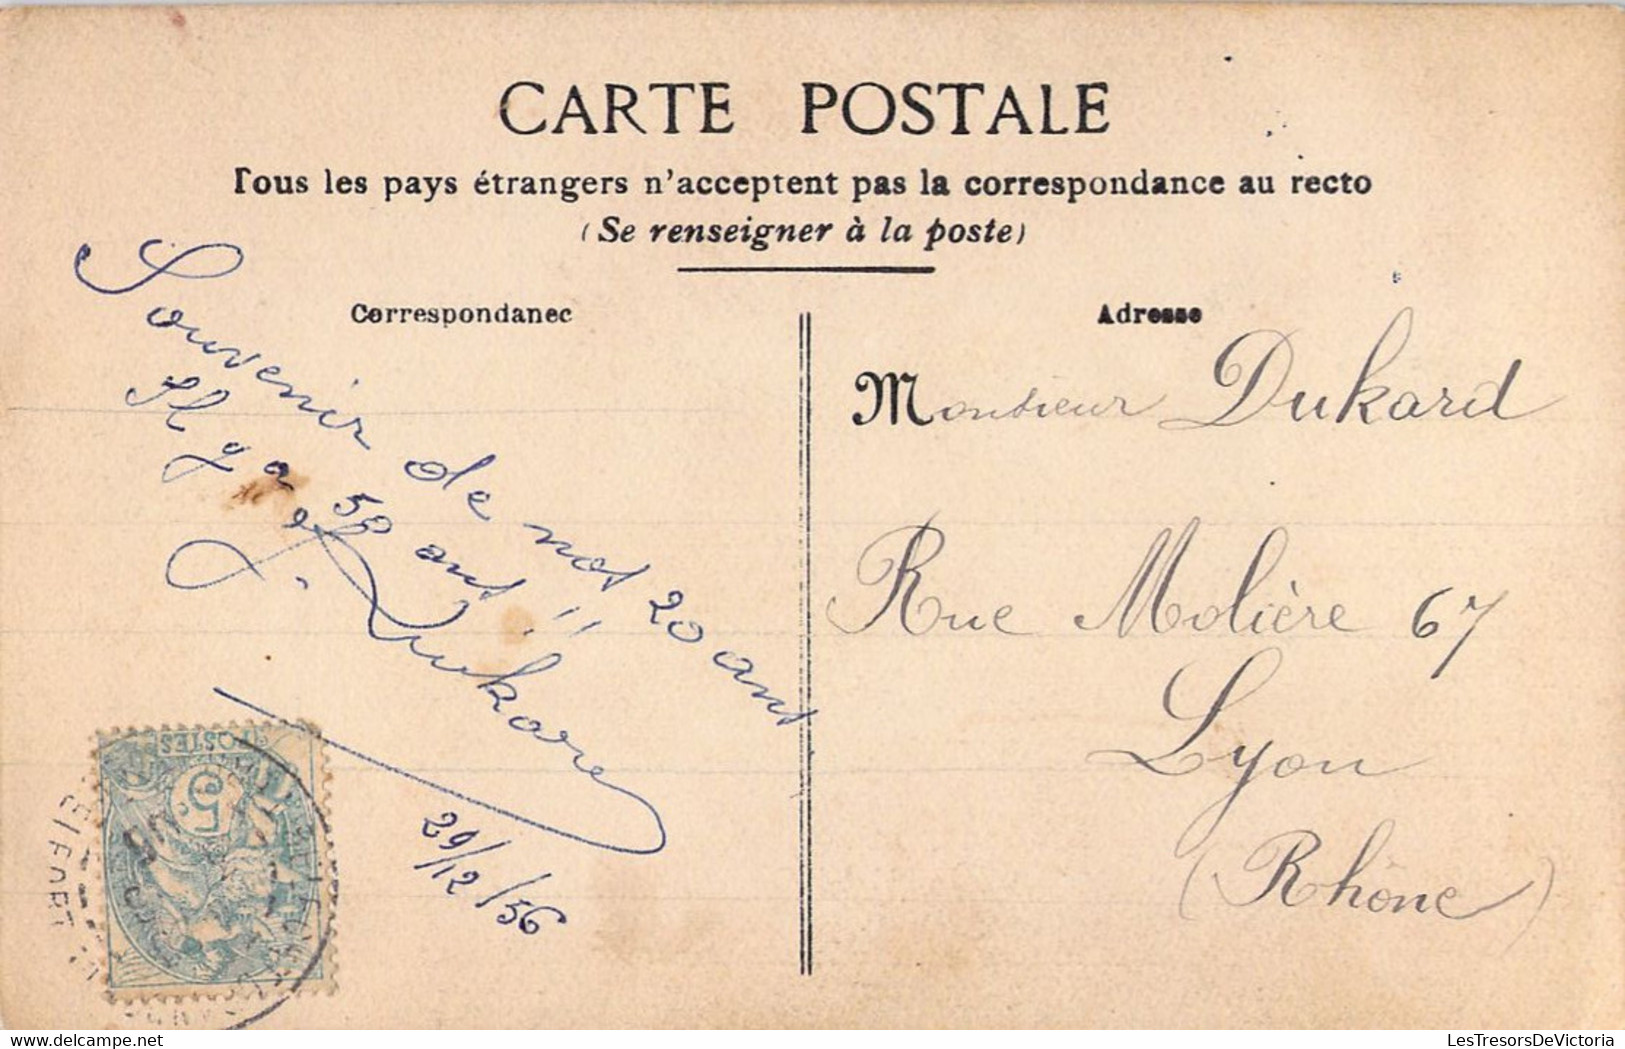 CARTE POSTALE
Tous les pays étrangers n'acceptent pas la correspondance au recto
(Se renseigner à la poste)
Correspondanec
Adresse
Souvenir de nos 20 ans
Il y a 50 ans !!
29/12/56
Monsieur Dukard
Rue Molière 67
Lyon
(Rhône)
POSTES
5
LesTresorsDeVictoria